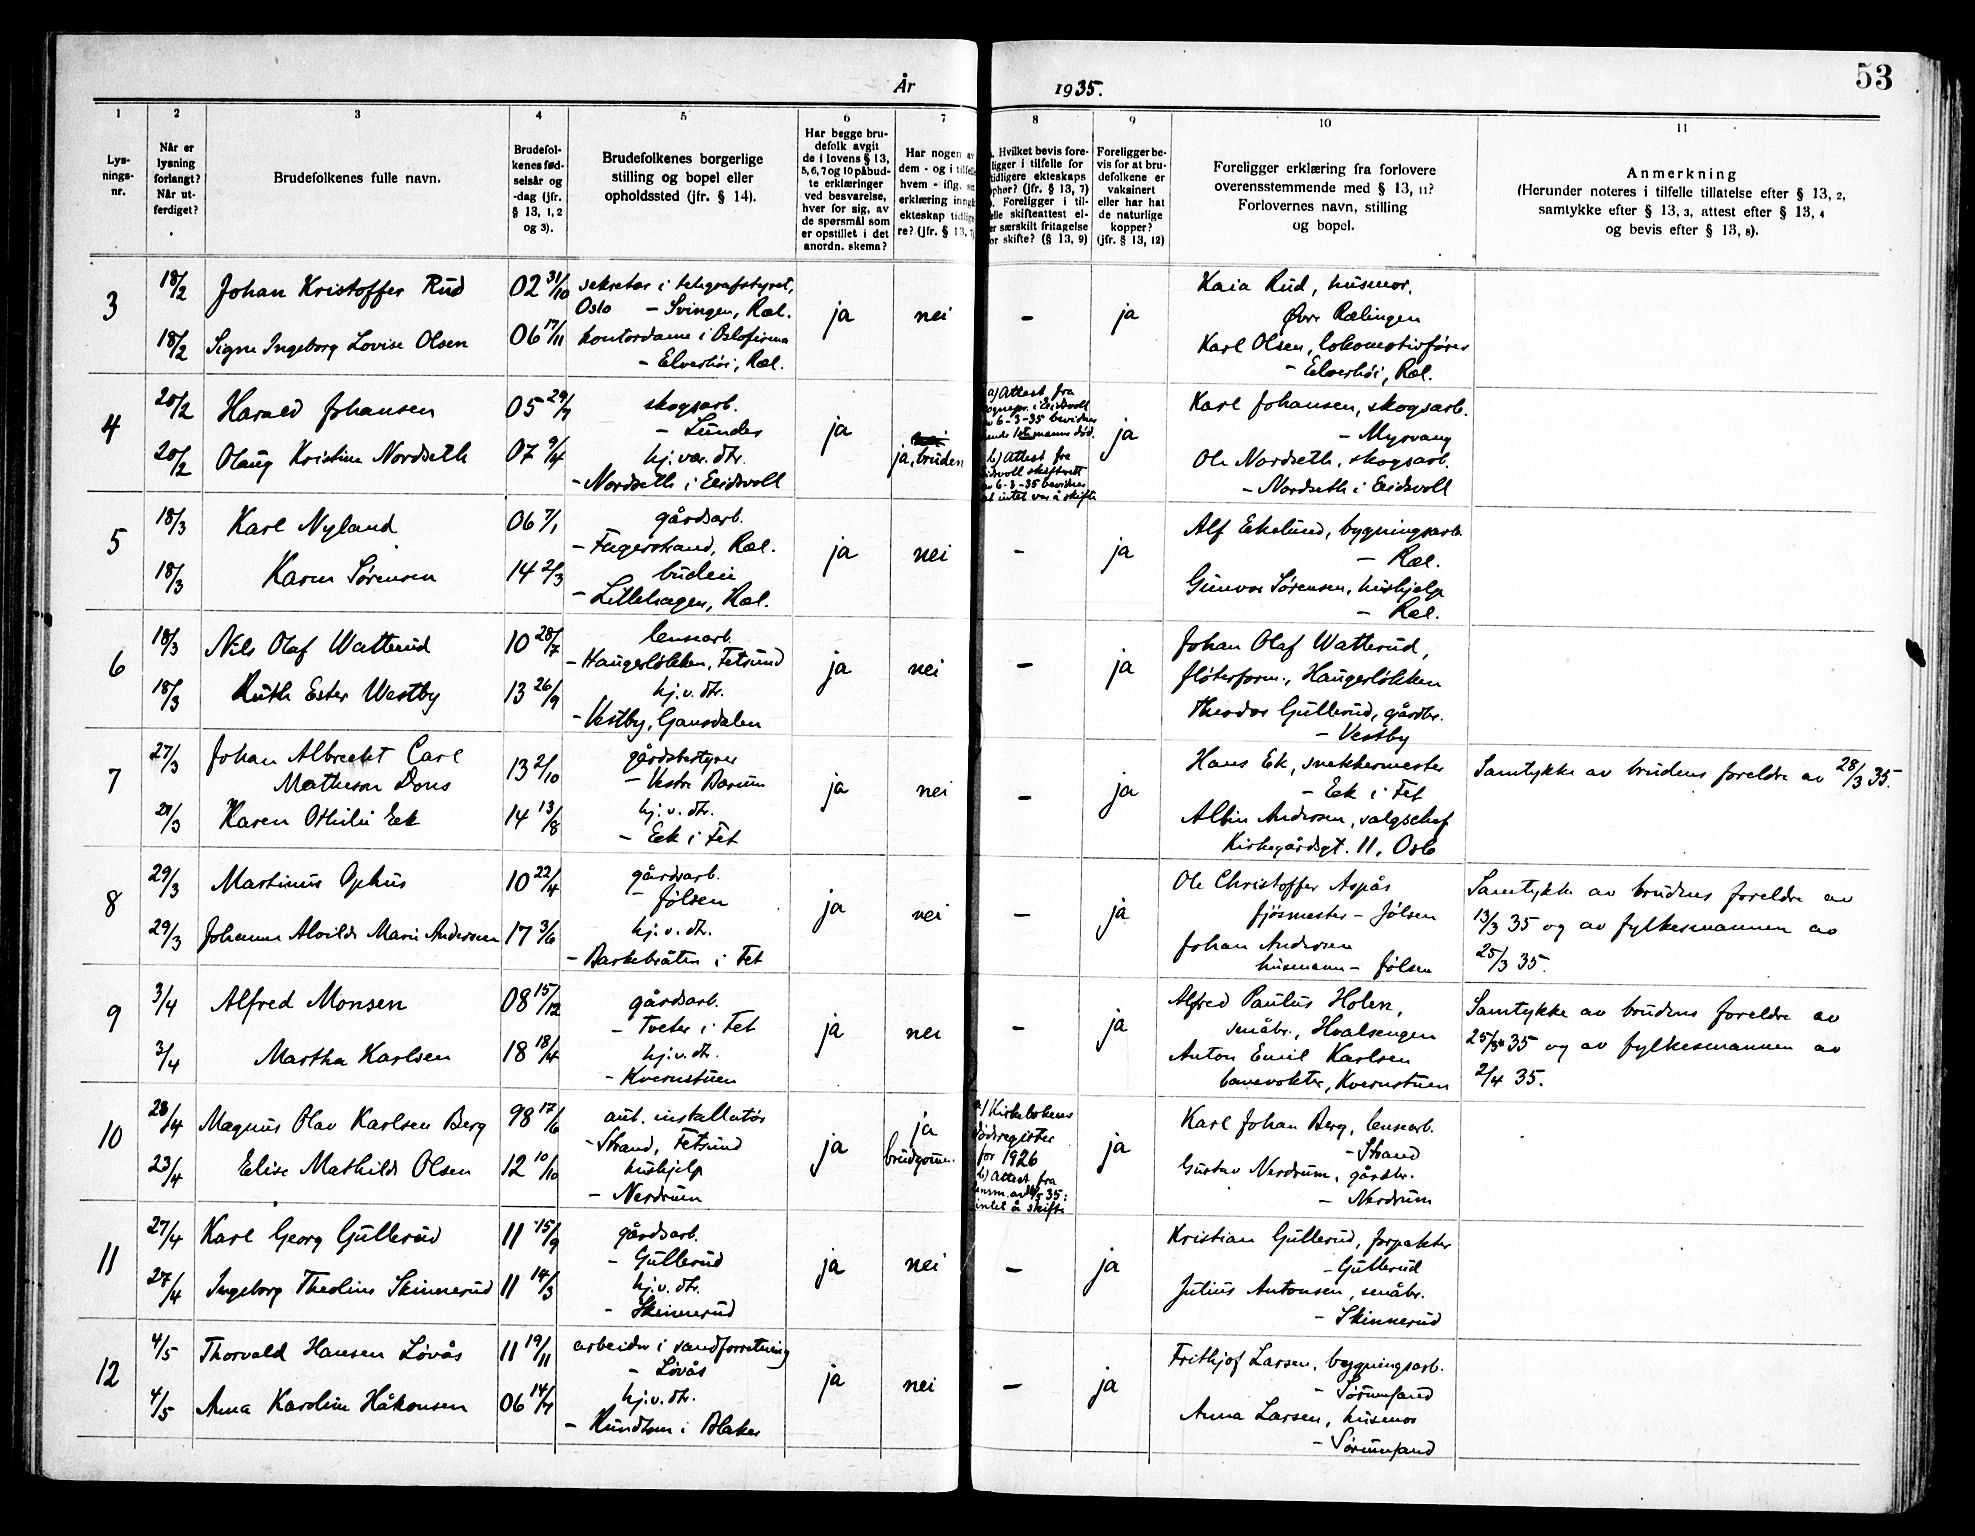 53
År 1935.
1
2
3
4
5
6
7
8
9
10
11
Lys-
nings-
nr.
Når er
lysning
forlangt?
Når ut-
ferdiget?
Brudefolkenes fulle navn.
Brudefol-
kenes fød-
selsår og
-dag (jfr.
§ 13, 1, 2
og 3).
Brudefolkenes borgerlige
stilling og bopel eller
opholdssted (jfr. § 14).
Har begge bru-
defolk avgit
de i lovens § 13,
5, 6, 7 og 10 påbud-
te erklæringer
ved besvarelse,
hver for sig, av
de spørsmål som
er opstillet i det
anordn. skema?
Har nogen av
dem - og i tilfelle
hvem - iflg. sin
erklæring inngå
ekteskap tidlige-
re? (jfr. § 13, 7
Hvilket bevis fore-
ligger i tilfelle for
tidligere ekteskaps
ophør? (jfr. § 13, 7)
Foreligger i til-
felle skifteattest el-
er særskilt fritagelse
or skifte? (§ 13, 9)
Foreligger be-
vis for at bru-
defolkene er
vaksinert
eller har hat
de naturlige
kopper?
(jfr. § 13, 12)
Foreligger erklæring fra forlovere
overensstemmende med § 13, 11?
Forlovernes navn, stilling
og bopel.
Anmerkning
(Herunder noteres i tilfelle tillatelse efter § 13, 2,
samtykke efter § 13, 3, attest efter § 13, 4
og bevis efter § 13, 8).
3
18/2 Johan Kristoffer Rud 02 31/10 sekretær i telegrafstyret,
Oslo – Svingen, Ræl. ja nei – ja
18/2 Signe Ingeborg Lovise Olsen 06 17/11 kontordame i Oslofirma
– Elverhöi, Ræl.
Kaia Rud, husmor.
Øvre Rælingen
Karl Olsen, lokomotivfører
– Elverhöi, Ræl.
4
20/2 Harald Johansen 05 29/7 skogsarb.
– Lunder ja ja, bruden ja
20/2 Olaug Kristine Nordseth 07 9/4 hj.vær. dtr.
– Nordseth i Eidsvoll
a) Attest fra
sognepr. i Eidsvoll
av 6-3-35 bevidner
hendes 1ste manns død.
b) Attest fra
Eidsvoll skifterett
av 6-3-35 bevidner
at intet var å skifte
Karl Johansen, skogsarb.
– Myrvang
Ole Nordseth, skogsarb.
– Nordseth i Eidsvoll
5
18/3 Karl Nyland 06 7/1 gårdsarb.
– Fagerstrand, Ræl. ja nei – ja
18/3 Karen Sørensen 14 2/3 budeie
– Lillehagen, Ræl.
Alf Eikelund, bygningsarb.
– Ræl.
Gunvor Sørensen, hushjelp
– Ræl.
6
18/3 Nils Olaf Watterud 10 28/7 lensearb.
– Haugerløkken, Fetsund ja nei – ja
18/3 Ruth Ester Westby 13 26/9 hj.v. dtr.
– Vestby, Gansdalen
Johan Olaf Watterud,
fløterform., Haugerløkken
Theodor Gullerud, gårdbr.
– Vestby
7
27/3 Johan Albrecht Carl
Matheson Dons 13 2/10 gårdsbestyrer
– Vestre Bærum ja nei – ja
27/3 Karen Othilie Eek 14 13/8 hj.v. dtr.
– Eek i Fet
Hans Ek, snekkermester
– Eek i Fet
Albin Andersen, salgschef
Kirkegårdsgt. 11, Oslo
Samtykke av brudens foreldre av 28/3 35.
8
29/3 Martinus Ophus 10 22/4 gårdsarb.
– Jölsen ja nei – ja
29/3 Johanne Alvilde Marie Andersen 17 3/6 hj.v. dtr.
– Barkebråten i Fet
Ole Christoffer Aspås
fjøsmester – Jölsen
Johan Andersen
husmann – Jölsen
Samtykke av brudens foreldre av
13/3 35 og av fylkesmannen av
25/3 35.
9
3/4 Alfred Monsen 08 15/12 gårdsarb.
– Tveter i Fet ja nei – ja
3/4 Martha Karlsen 18 18/4 hj.v. dtr.
– Kvernstuen
Alfred Paulus Holen,
småbr., Hvalsengen
Anton Emil Karlsen
banevokter, Kvernstuen
Samtykke av brudens foreldre av
25/3 35 og av fylkesmannen av
2/4 35.
10
23/4 Magnus Olav Karlsen Berg 98 17/6 aut. installatør
– Strand, Fetsund ja ja
brudgom. ja
23/4 Elise Mathilde Olsen 12 10/10 hushjelp
– Nerdrum
a) Kirkebokens
dødsregister
for 1926
b) Attest fra
lensm. av 35:
intet å skifte
Karl Johan Berg, lensearb.
– Strand
Gustav Nerdrum, gårdbr.
– Nerdrum
11
27/4 Karl Georg Gullerud 11 15/9 gårdsarb.
– Gullerud ja nei – ja
27/4 Ingeborg Theoline Skinnerud 11 14/3 hj.v. dtr.
– Skinnerud
Kristian Gullerud, forpakter
– Gullerud
Julius Antonsen, småbr.
– Skinnerud
12
4/5 Thorvald Hansen Lövås 11 19/11 arbeider i sandforretning
– Lövås ja nei – ja
4/5 Anna Karoline Håkonsen 06 14/7 hj.v. dtr.
– Rundtom i Blaker
Frithjof Larsen, bygningsarb.
– Sørumsand
Anna Larsen, husmor
– Sørumsand